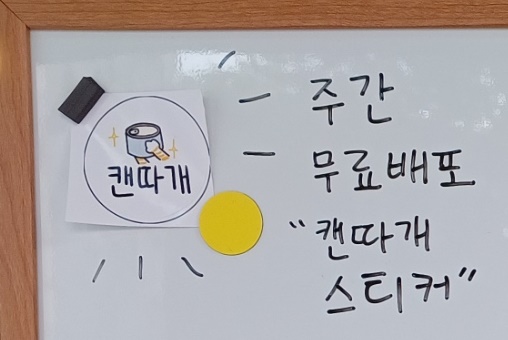 캔따개
주간
무료배포
"캔따개
스티커"